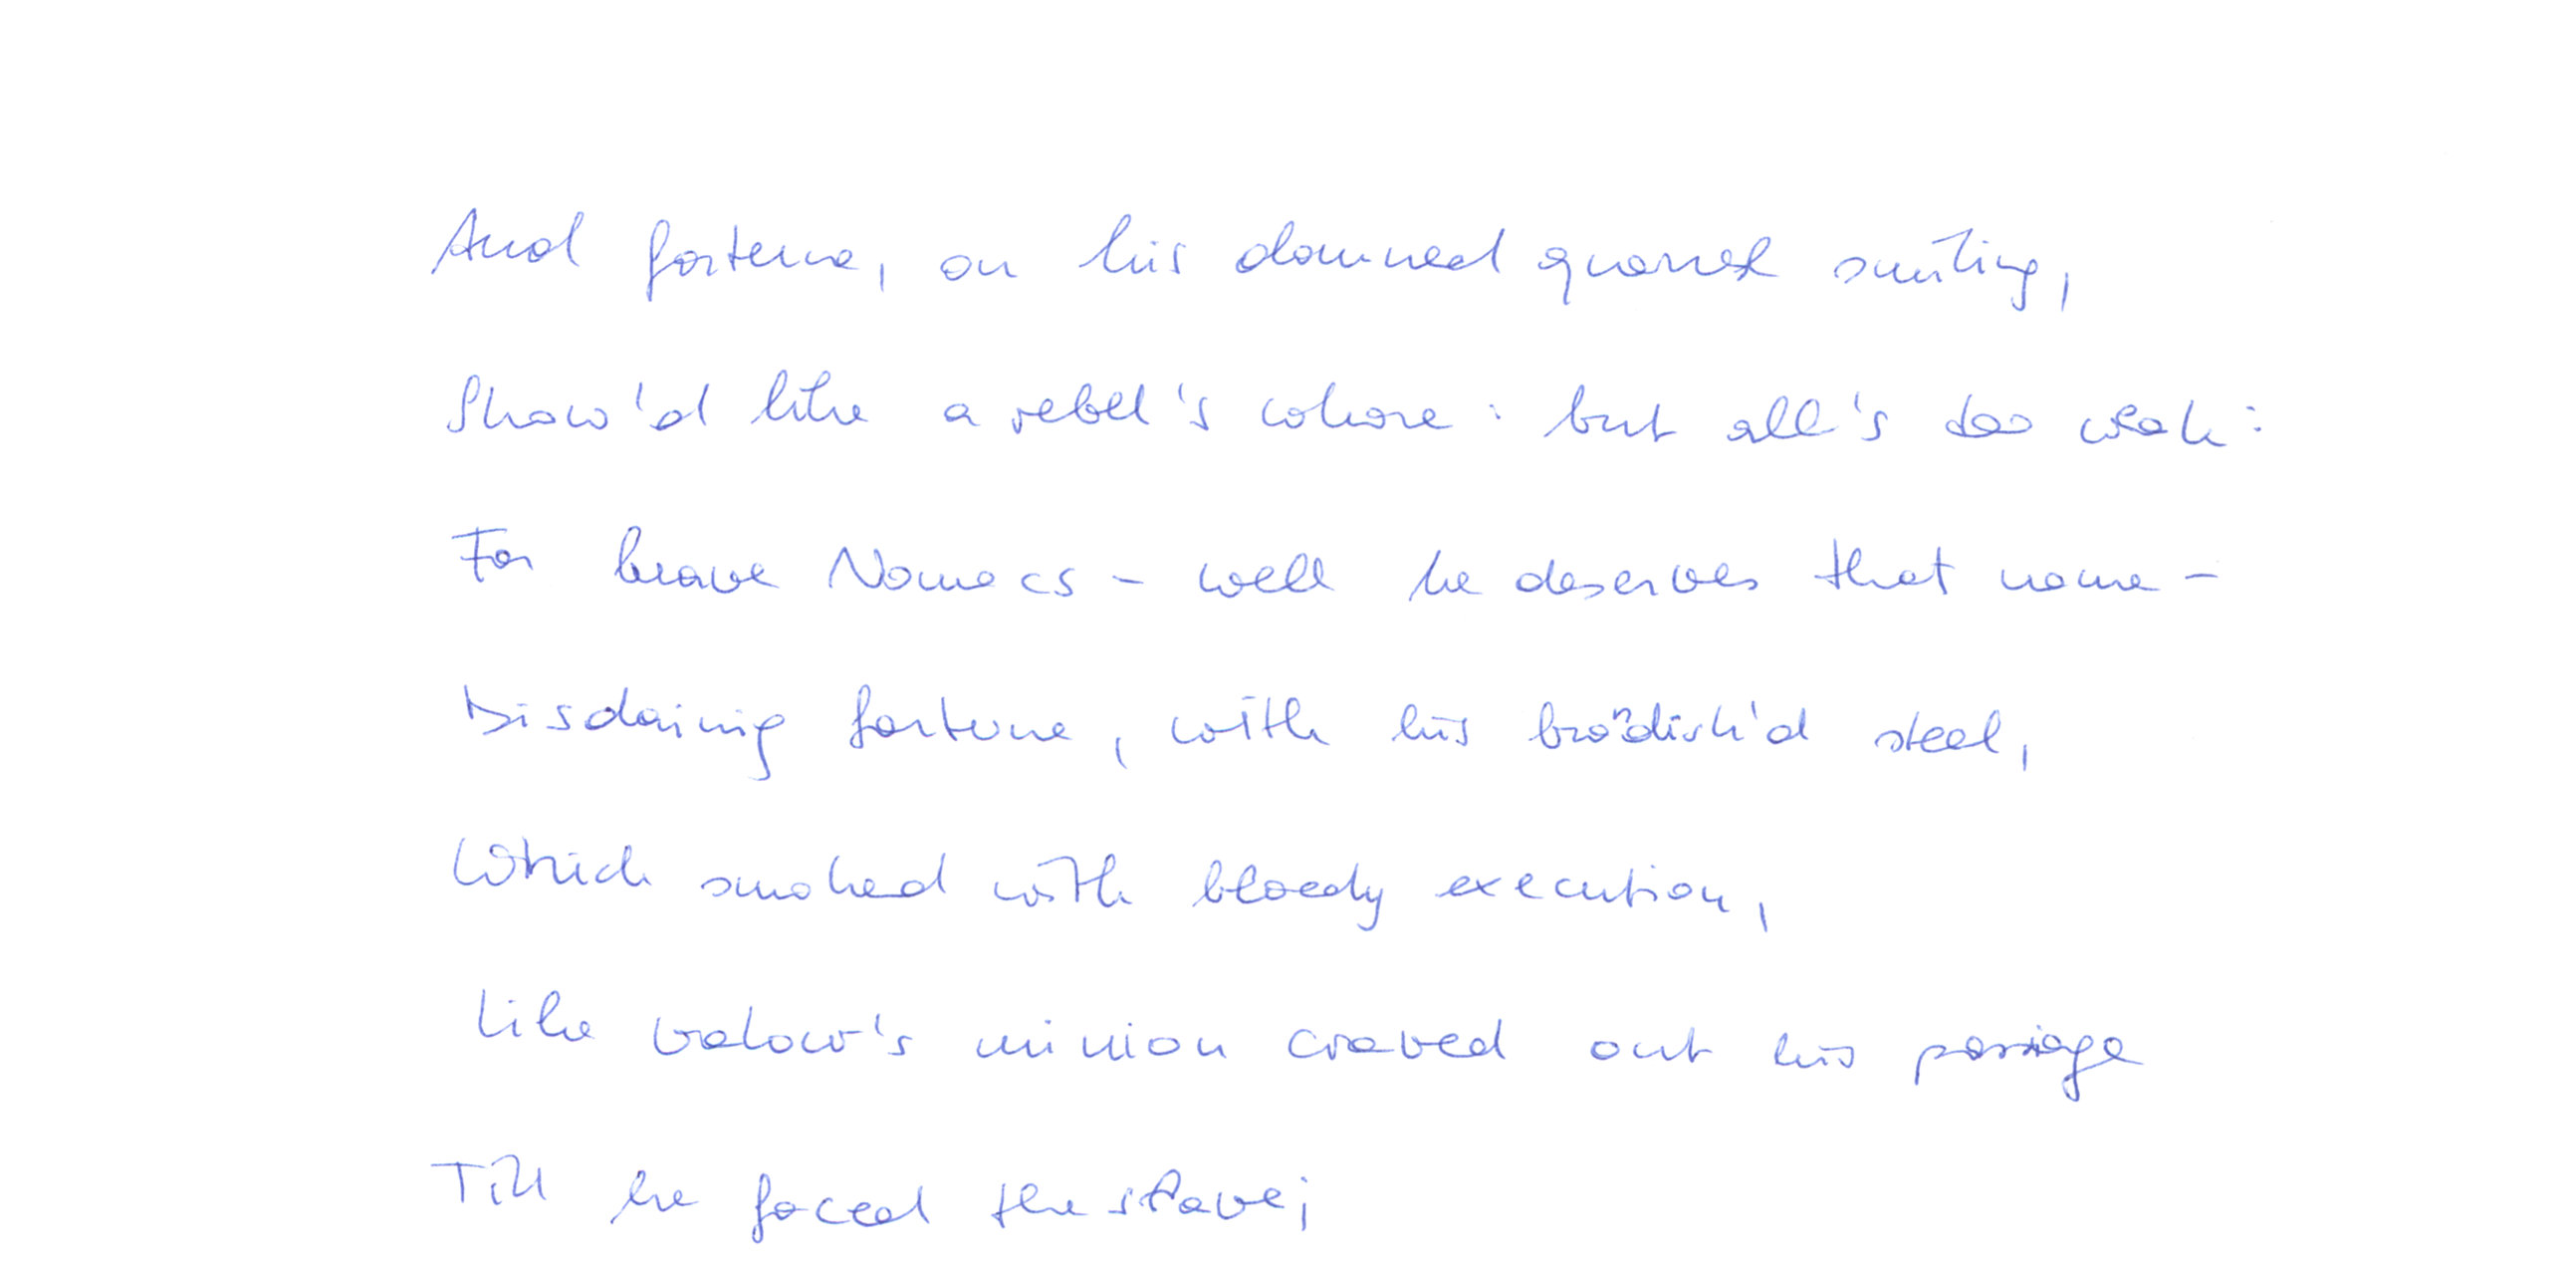 And fortune, on his damned quarrel smiling,
Show'd like a rebel's whore: but all's too weak:
For brave Nomacs - well he deserves that name -
Disdaining fortune, with his brandish'd steel,
Which smoked with bloody execution,
Like valour's minion craved out his passage
Till he faced the slave;